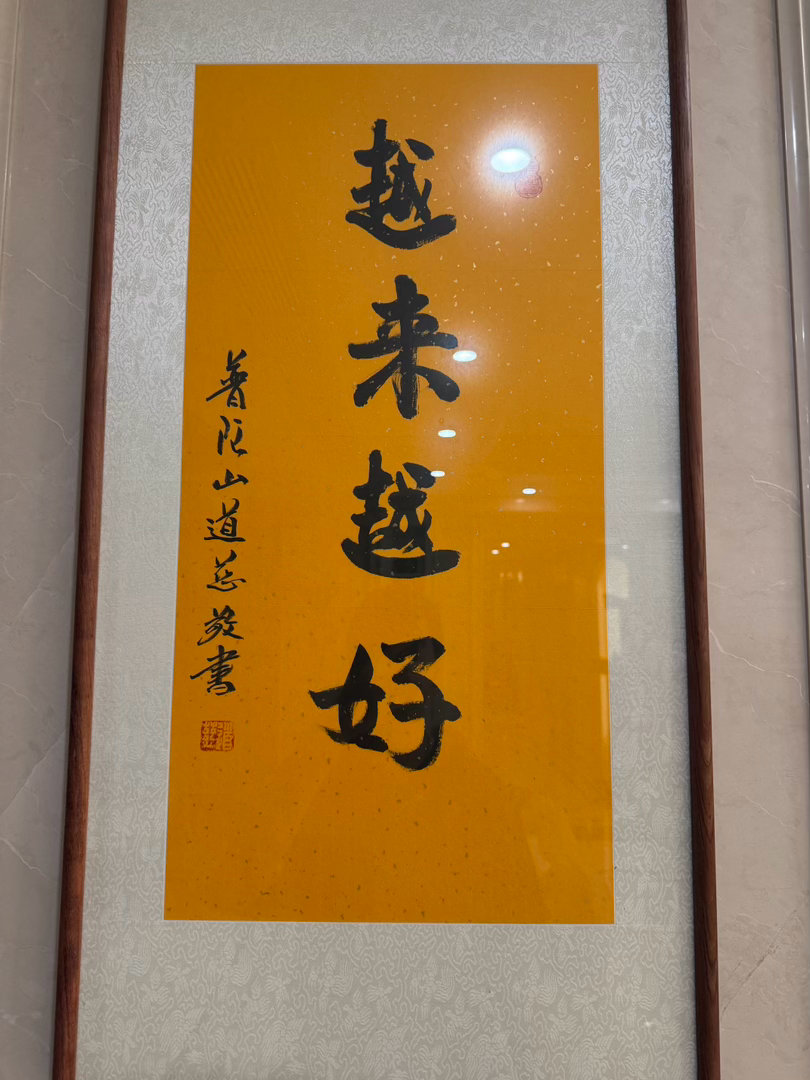 越来越好
普陀山道慈敬书